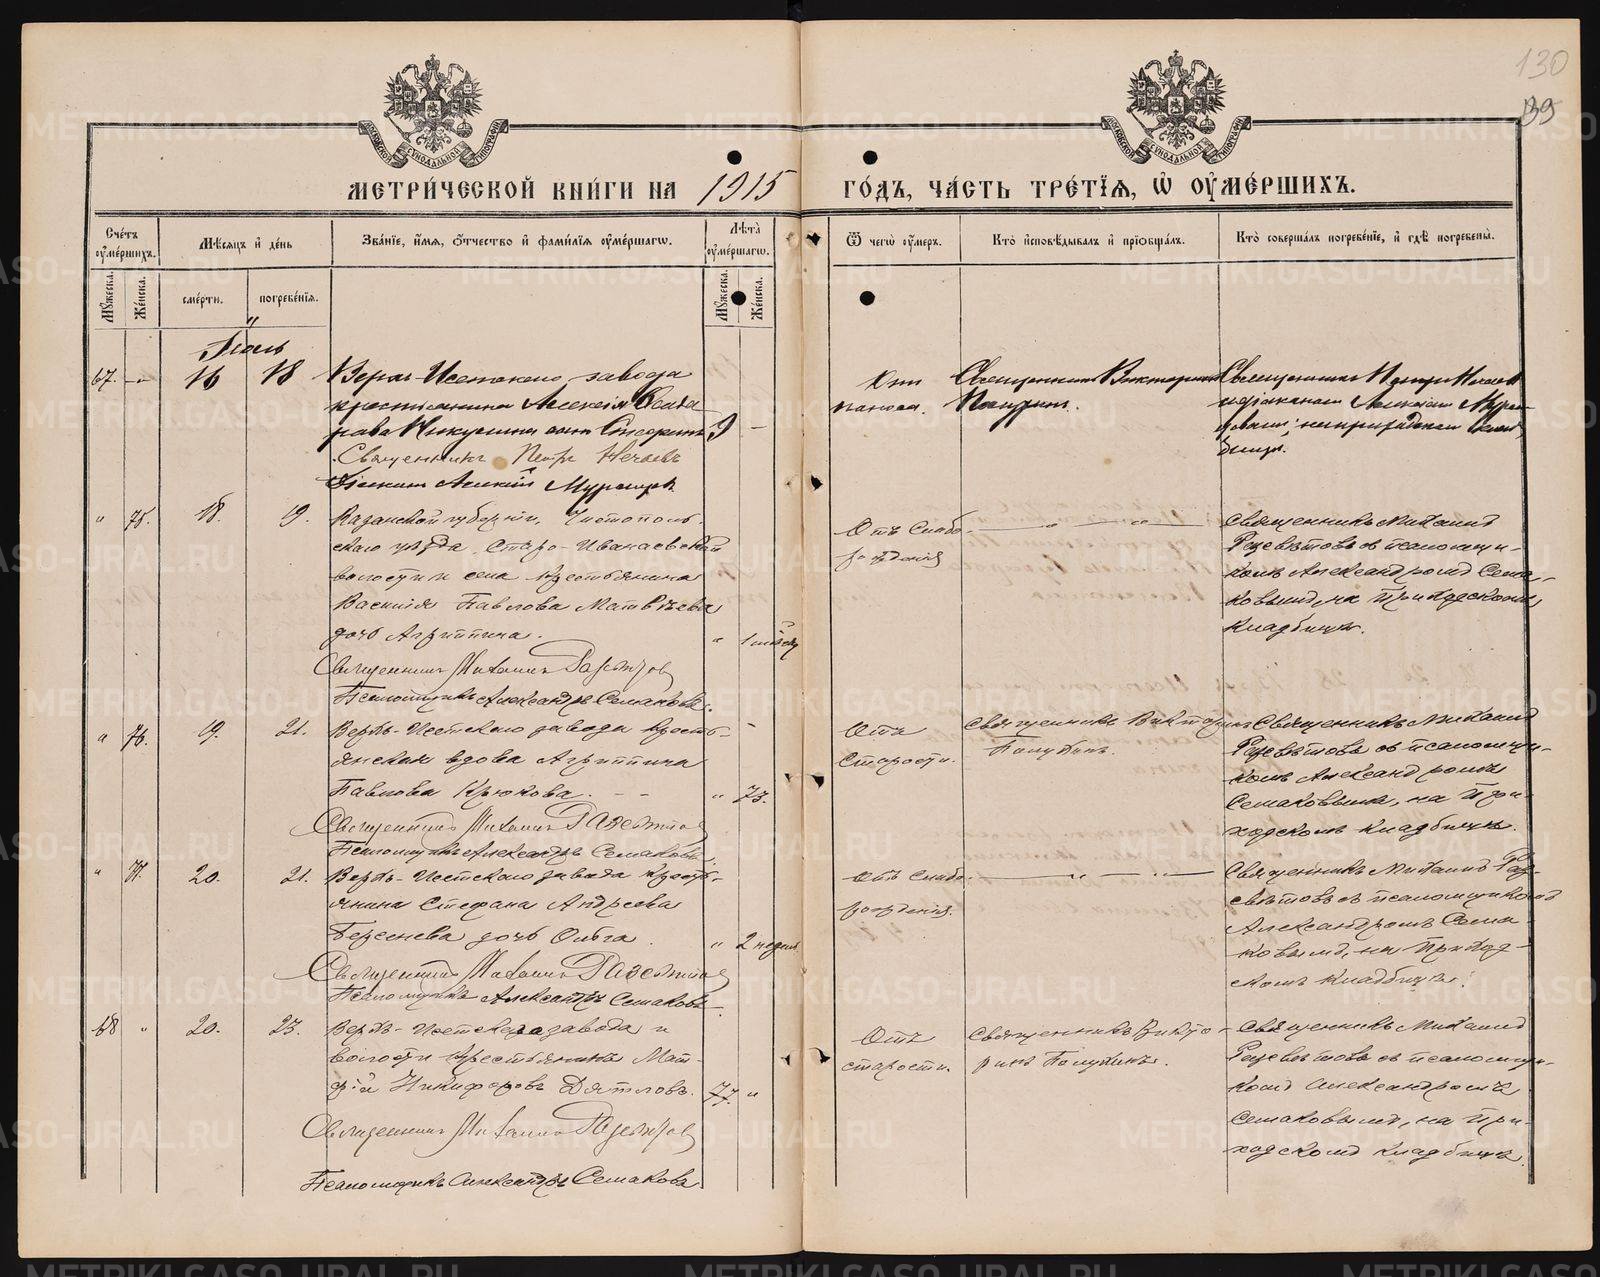 130
139
МЕТРИ́ЧЕСКОЙ КНИ́ГИ НА 1915 ГО́ДЪ, ЧА́СТЬ ТРЕ́ТЇѦ, Ѡ҆ ОУ҆МЕ́РШИХЪ.
Сче́тъ оу҆ме́ршихъ.
Мѣ́сяцъ и҆ де́нь
Зва́нїе, и҆́мѧ, ѻ҆́тчество и҆ фами́лїѧ оу҆ме́ршагѡ.
Лѣ́та оу҆ме́ршагѡ.
Ѿ чегѡ̀ оу҆́меръ.
Кто̀ и҆сповѣ́дывалъ и҆ прїѻбща́лъ.
Кто̀ соверша́лъ погребе́нїе, и҆ гдѣ̀ погребены̀.
Мꙋ́жеска.
Же́нска.
сме́рти.
погребе́нїѧ.
Мꙋ́жеска.
Же́нска.
Іюль
67. — 16 18
Верхъ-Исетскаго завода
крестьянина Алексія
9 —
Священникъ Петръ Нечаевъ
Алексій
Священникъ Викторинъ
Священникъ Петръ Нечаевъ
" 75. 18. 19.
Казанской губерніи, Чистополь-
скаго уѣзда, Старо-Иванаевской
волости и села крестьянина
Василія Павлова Матвѣева
дочь Агриппина.
" 1 мѣсяц
Священникъ Михаилъ Разсвѣтовъ
Псаломщикъ Александръ Семаковъ.
Отъ слабо-
рожденія
— " — " —
Священникъ Михаилъ
Разсвѣтовъ съ псаломщи-
комъ Александромъ Сема-
ковымъ, на приходскомъ
кладбищѣ.
" 76. 19. 21.
Верхъ-Исетскаго завода кресть-
янская вдова Агриппина
Павлова Крюкова. — —
" 73.
Священникъ Михаилъ Разсвѣтовъ
Псаломщикъ Александръ Семаковъ.
Отъ
старости.
Священникъ Викторинъ
Полухинъ.
Священникъ Михаилъ
Разсвѣтовъ съ псаломщи-
комъ Александромъ
Семаковымъ, на при-
ходскомъ кладбищѣ.
" 77. 20. 21.
Верхъ-Исетскаго завода кресть-
янина Стефана Андреева
Береснева дочь Ольга.
" 2 недѣль
Священникъ Михаилъ Разсвѣтовъ
Псаломщикъ Александръ Семаковъ.
Отъ слабо-
рожденія.
— " — " —
Священникъ Михаилъ Раз-
свѣтовъ съ псаломщикомъ
Александромъ Сема-
ковымъ, на приход-
скомъ кладбищѣ.
68 " 20. 23.
Верхъ-Исетскаго завода и
волости крестьянинъ Мат-
фій Никифоровъ Дятловъ.
77. "
Священникъ Михаилъ Разсвѣтовъ
Псаломщикъ Александръ Семаковъ
Отъ
старости.
Священникъ Викто-
ринъ Полухинъ.
Священникъ Михаилъ
Разсвѣтовъ съ псаломщи-
комъ Александромъ
Семаковымъ, на при-
ходскомъ кладбищѣ.
METRIKI.GASO-URAL.RU